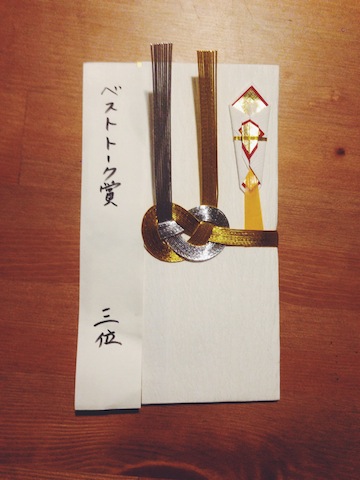 ベストトーク賞
三位